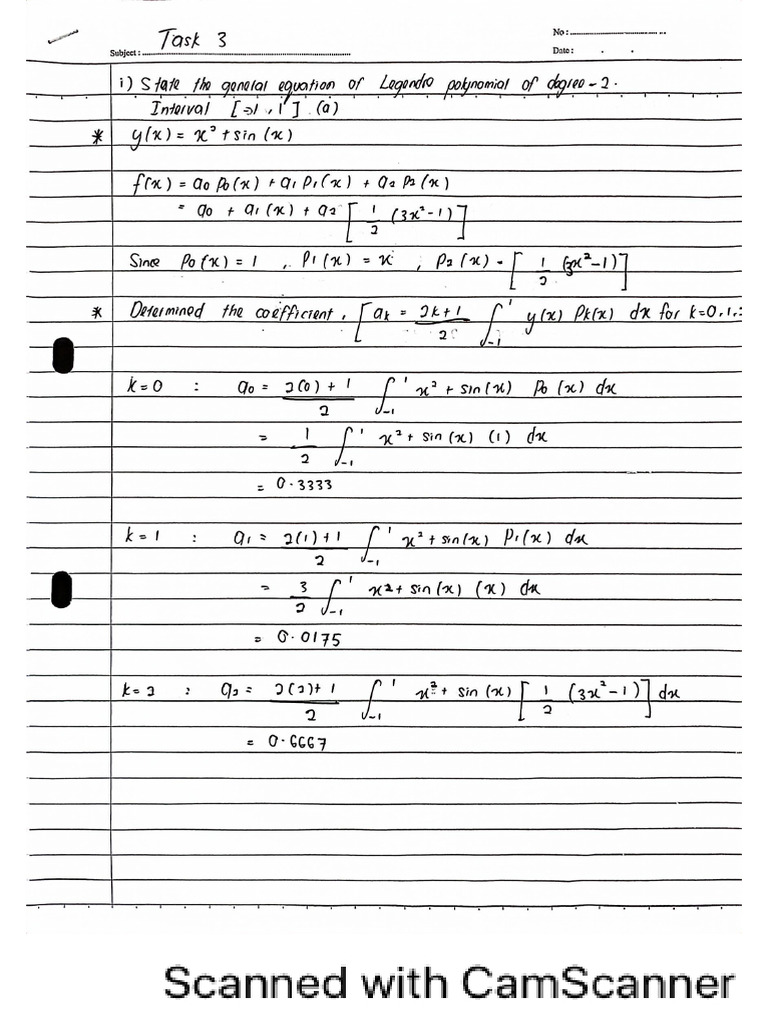 Task 3
No :
Subject :
Date :
i) State the general equation of Legendre polynomial of degree-2.
Interval [-1, 1]. (a)
* y(x) = x² + sin(x)
f(x) = a0 P0(x) + a1 P1(x) + a2 P2(x)
= a0 + a1(x) + a2 [ 1/2 (3x²-1) ]
Since P0(x) = 1 , P1(x) = x , P2(x) = [ 1/2 (3x²-1) ]
* Determined the coefficient, [ ak = 2k+1/2 ∫₋₁¹ y(x) Pk(x) dx for k=0,1,
k=0 : a0 = 2(0)+1/2 ∫₋₁¹ x² + sin(x) P0(x) dx
= 1/2 ∫₋₁¹ x² + sin(x) (1) dx
= 0.3333
k=1 : a1 = 2(1)+1/2 ∫₋₁¹ x² + sin(x) P1(x) dx
= 3/2 ∫₋₁¹ x² + sin(x) (x) dx
= 0.0175
k=2 : a2 = 2(2)+1/2 ∫₋₁¹ x² + sin(x) [ 1/2 (3x²-1) ] dx
= 0.6667
Scanned with CamScanner